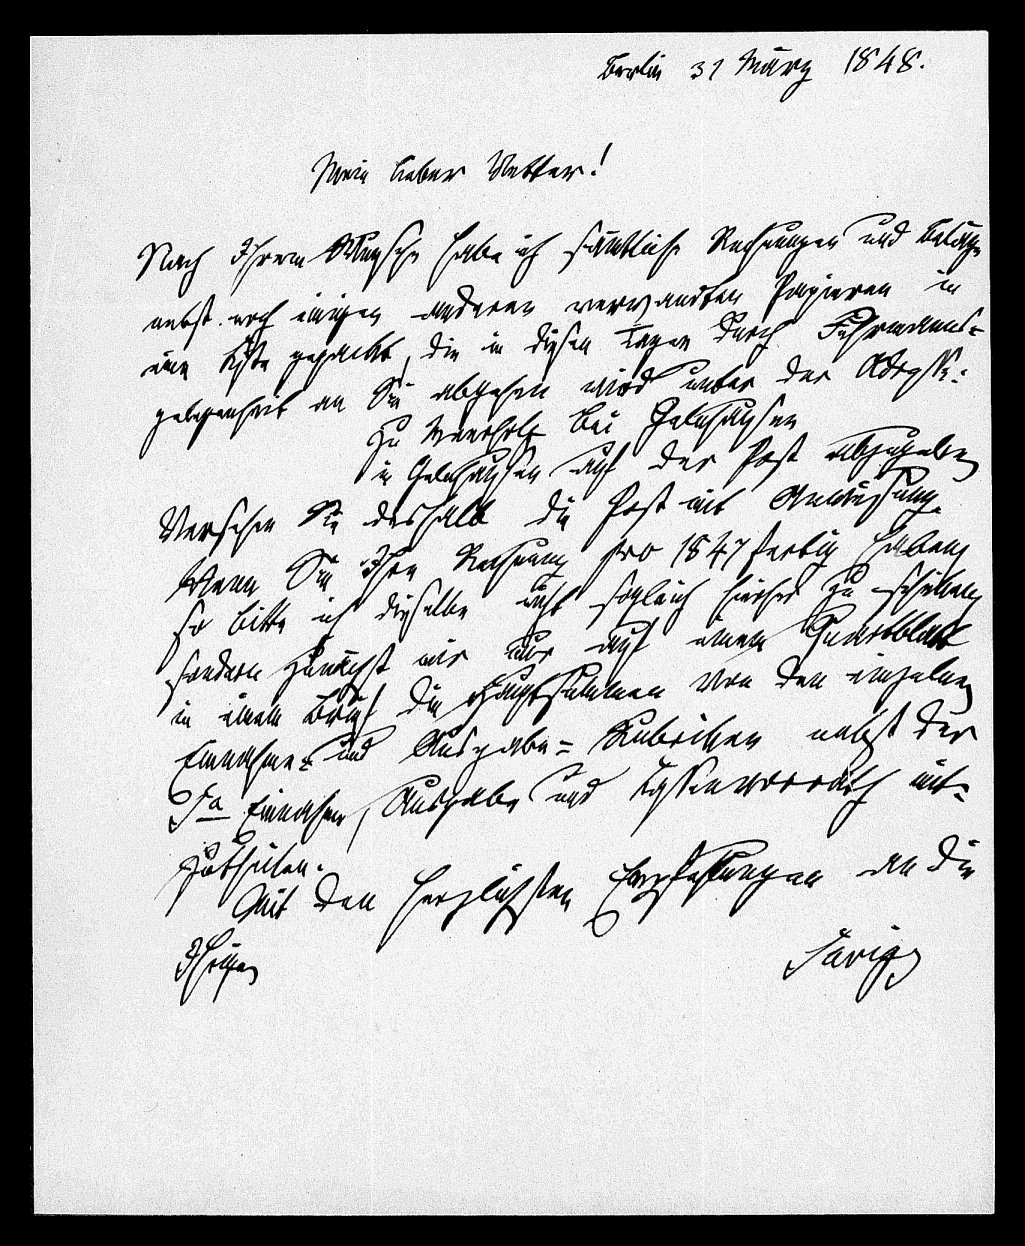 Berlin 31 März 1848.
Mein lieber Vetter!
Nach Ihrem Wunsche habe ich sämtliche Rechnungen und Beläge
nebst noch einigen anderen verwandten Papieren in
eine Kiste gepackt, die in diesen Tagen durch Fuhrmanns=
gelegenheit an Sie abgehen wird unter der Adresse:
zu Meerholz bei Gelnhausen
in Gelnhausen auf der Post abzugeben
Versehen Sie deshalb die Post mit Anweisung.
Wenn Sie Ihre Rechnung pro 1847 fertig haben,
so bitte ich dieselbe nicht sogleich hierher zu schicken,
sondern zunächst mir nur auf einem Quartblatt
in einem Brief die Hauptsummen von den einzelnen
Einnahme= und Ausgabe= Rubriken nebst der
Sa Einnahme, Ausgabe und Kassenvorrath mit=
zutheilen.
Mit den herzlichsten Empfehlungen an die
Ihrigen
Savigny